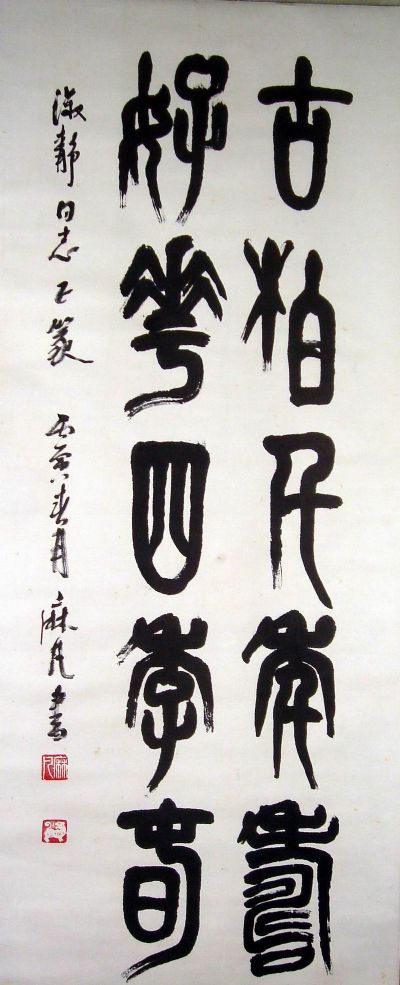 古柏千年壽
好華四季春
静同志正篆 丙寅春月 麻凡書
麻凡